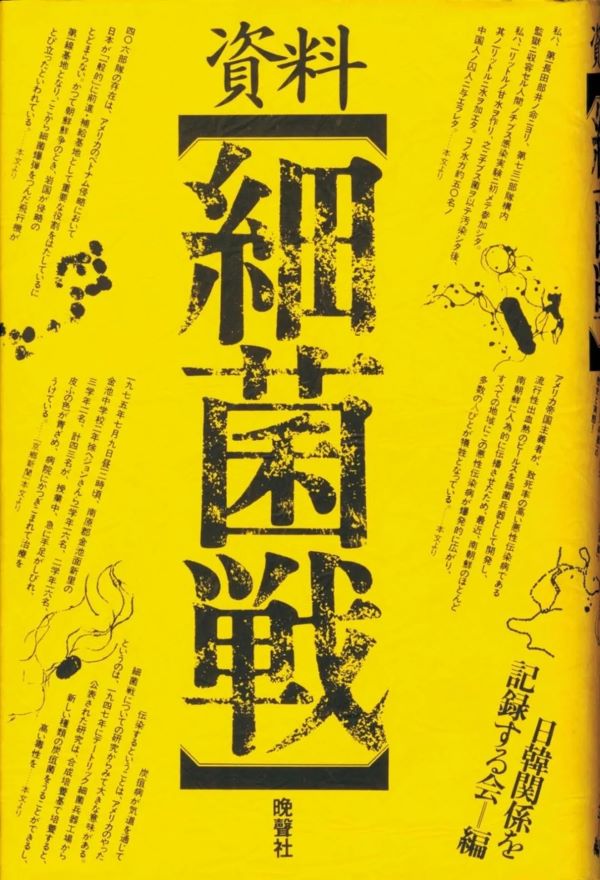 資料
【細菌戦】
私ハ、第二長田部井ノ命ニヨリ、第七三一部隊構内
監獄ニ収容セル人間ノチブス感染実験ニ初メテ参加シタ。
私ハ、一リットルノ甘水ヲ作リ、之ニチブス菌ヲ以テ汚染シタ後、
其ノ一リットルニ水ヲ加エタ。コノ水ガ約五〇名ノ
中国人ノ囚人ニ与エラレタ。……本文より
四〇六部隊の存在は、アメリカのベトナム侵略において
日本が「一般的」に前進・補給基地として重要な役割をはたしているに
とどまらない。かつて朝鮮戦争のとき、岩国が侵略の
第一線基地となり、ここから細菌爆弾をつんだ飛行機が
とび立ったといわれている。……本文より
アメリカ帝国主義者が、致死率の高い悪性伝染病である
流行性出血熱のビールスを細菌兵器として開発し、
南朝鮮に人為的に伝播させたため、最近、南朝鮮のほとんど
すべての地域にこの悪性伝染病が爆発的に広がり、
多数の人びとが犠牲となっている。……本文より
一九七五年七月九日昼二時頃、南原郡金池面新里の
金池中学校二年徐ヘジョンさんら一学年一六名、二学年一六名、
三学年一一名、計四三名が、授業中、急に手足がしびれ、
皮ふの色が青ざめ、病院にかつぎこまれて治療を
うけている。……「京郷新聞」本文より
炭疽病が気道を通じて
伝染するということは、アメリカのやった
細菌戦についての研究からみて大きな意味がある。
というのは、一九四七年にデートリック細菌兵器工場から
公表された研究は、合成培養基で培養すると、
新しい種類の炭疽菌をうることができるし、
高い毒性を……本文より
日韓関係を
記録する会=編
晩聲社